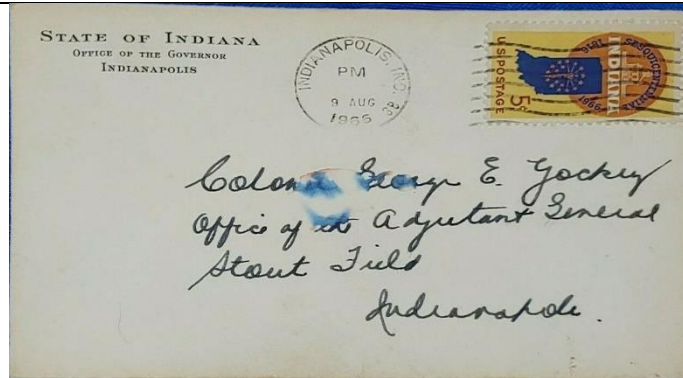 STATE OF INDIANA
OFFICE OF THE GOVERNOR
INDIANAPOLIS
INDIANAPOLIS, IND.
PM
9 AUG
1966
SESQUICENTENNIAL
1816 1966
INDIANA
U.S. POSTAGE
5¢
Colonel George E. Yockey
Office of the Adjutant General
Stout Field
Indianapolis.